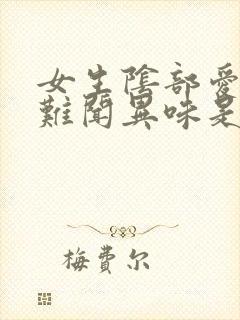 女生陰部愛
難聞異味是
梅費尔